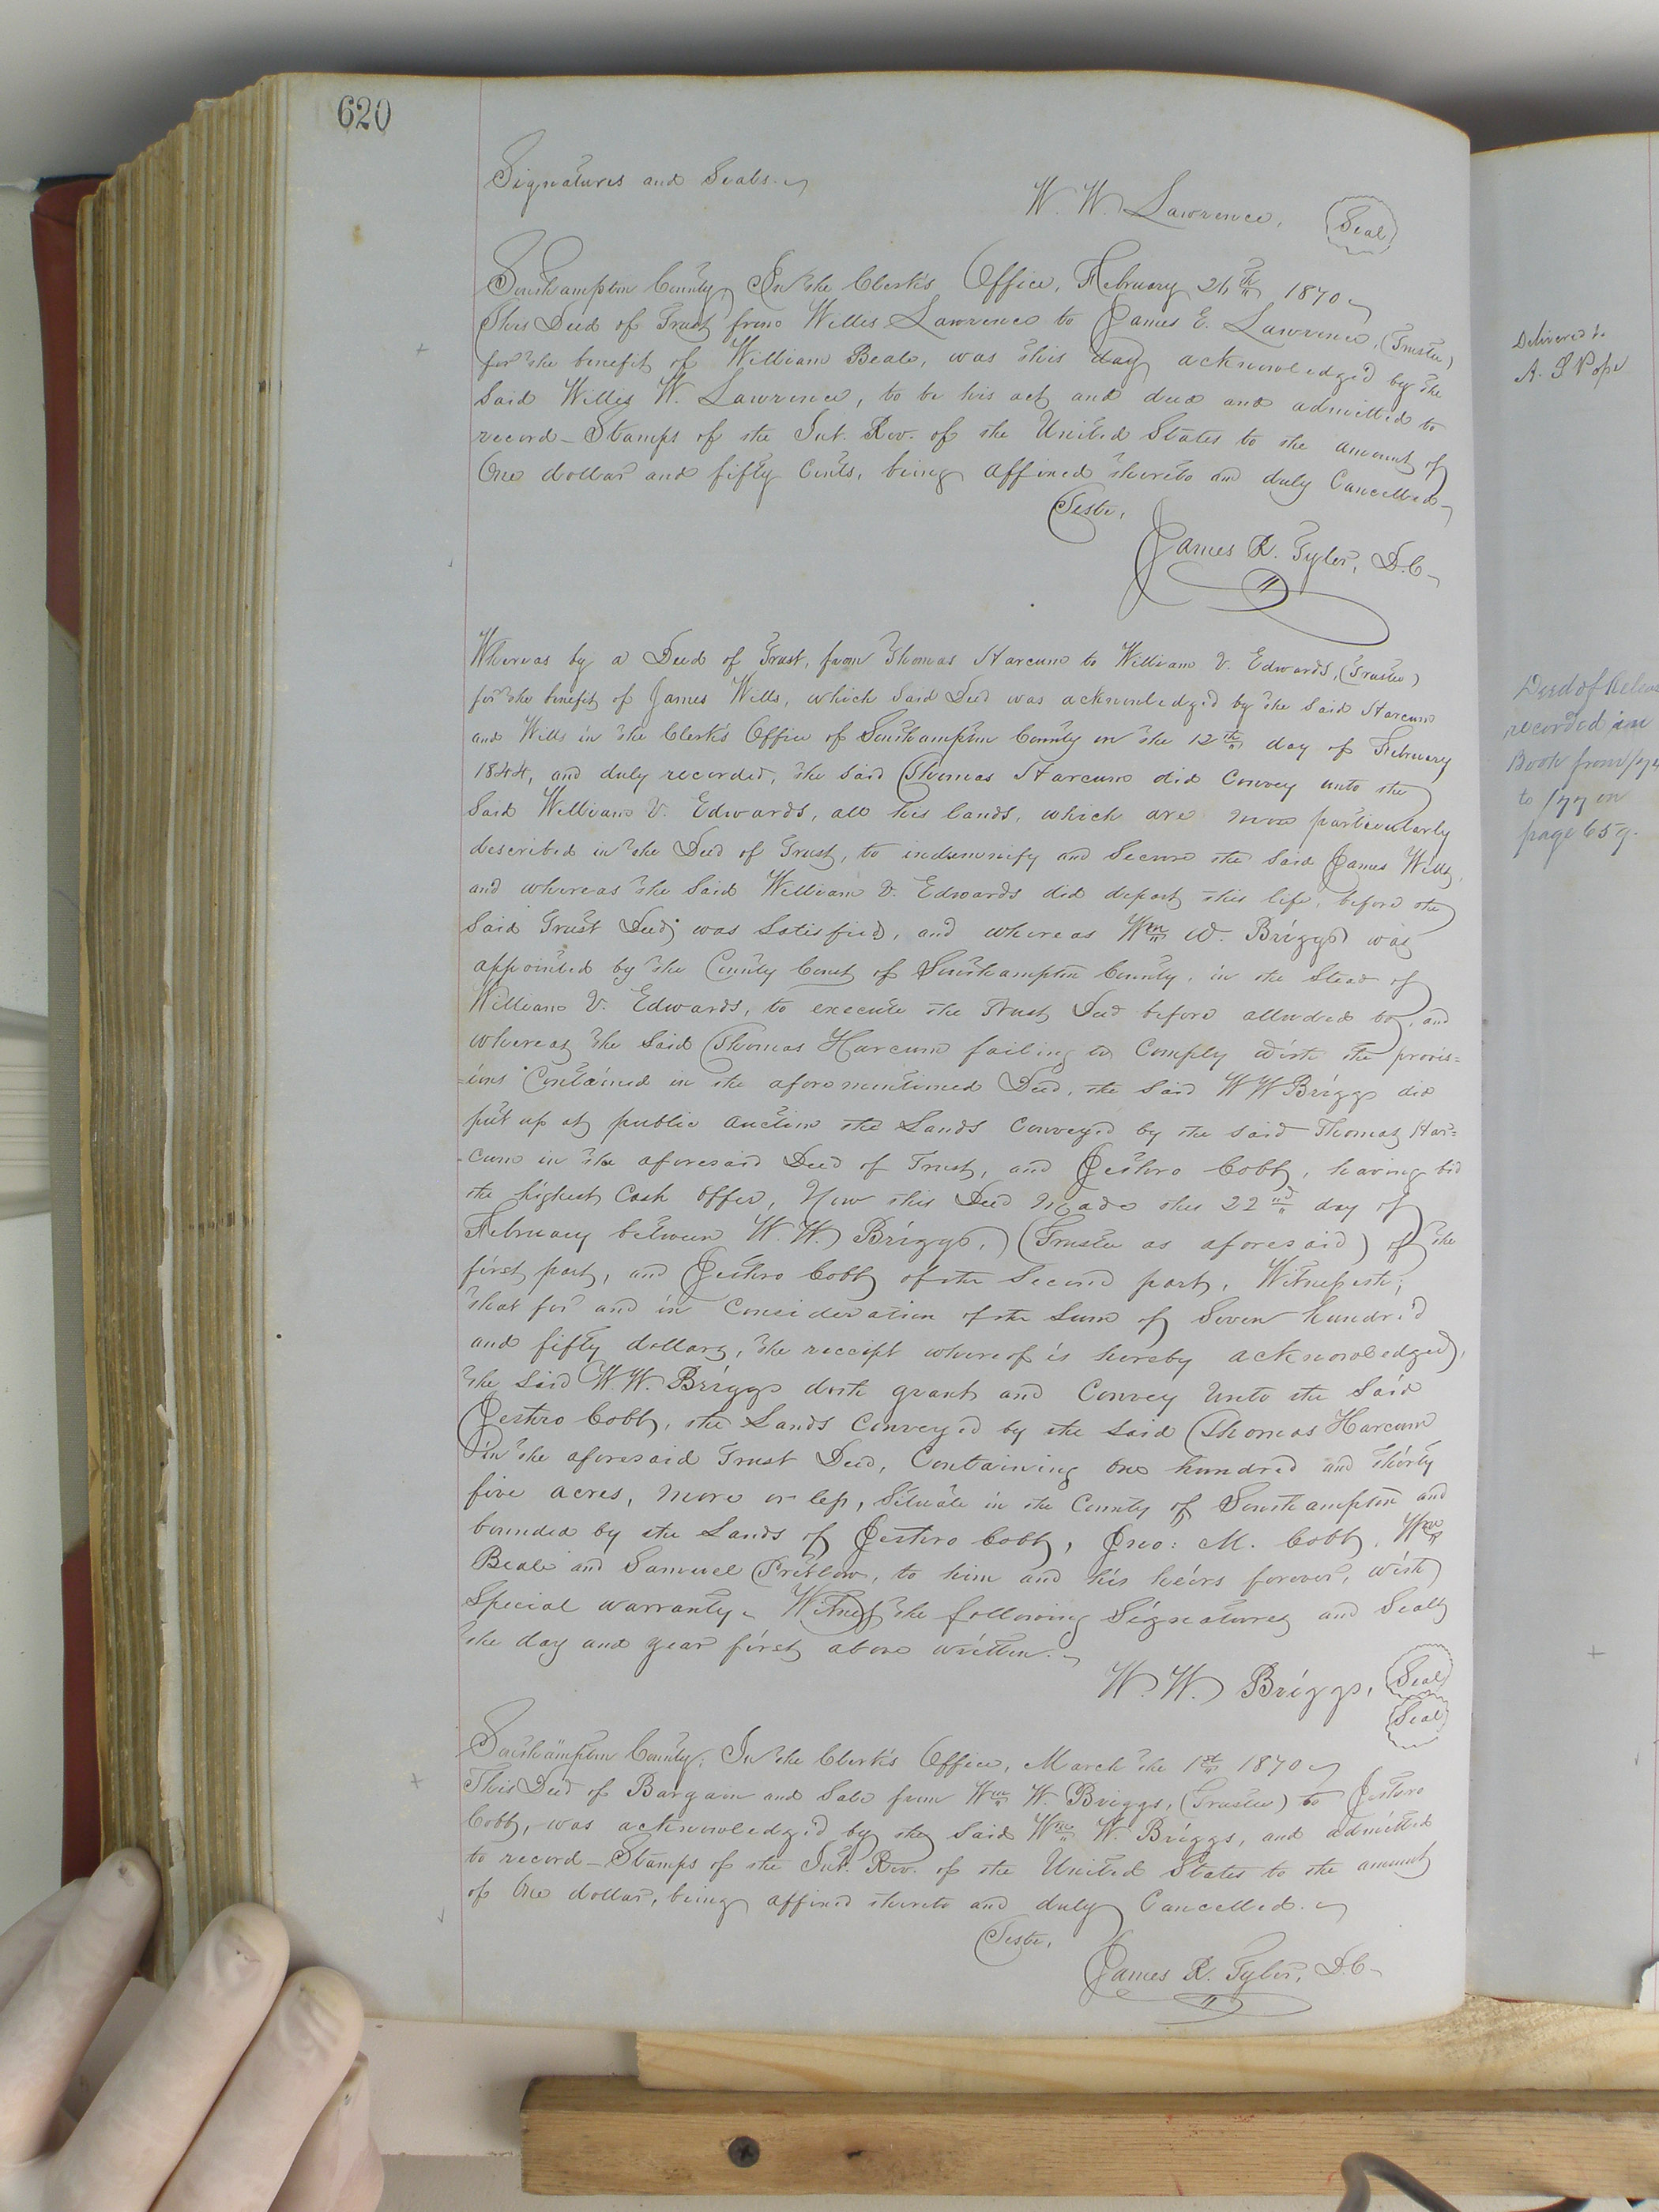 620
Signatures and Seals.
W. W. Lawrence, Seal
Southampton County, In the Clerk's Office, February 26th 1870
This Deed of Trust from Willis Lawrence to James E. Lawrence, (Trustee)
for the benefit of William Beale, was this day acknowledged by the
Said Willis W. Lawrence, to be his act and deed and admitted to
record - Stamps of the Int. Rev. of the United States to the amount of
One dollar and fifty Cents, being affixed thereto and duly Cancelled
Teste,
James R. Tyler, D.C.
Whereas by a Deed of Trust, from Thomas Harcum to William V. Edwards, (Trustee)
for the benefit of James Wills, which Said Deed was acknowledged by the Said Harcum
and Wills in the Clerk's Office of Southampton County on the 12th day of February
1844, and duly recorded, the Said Thomas Harcum did Convey unto the
Said William V. Edwards, all his lands, which are more particularly
described in the Deed of Trust, to indemnify and Secure the Said James Wills,
and whereas the Said William V. Edwards did depart this life, before the
Said Trust Deed was Satisfied, and whereas Wm W. Briggs was
appointed by the County Court of Southampton County, in the Stead of
William V. Edwards, to execute the Trust Deed before alluded to, and
whereas the Said Thomas Harcum failing to Comply with the provis=
=ions Contained in the aforementioned Deed, the Said W W Briggs did
put up at public auction the Lands Conveyed by the Said Thomas Har=
-cum in the aforesaid Deed of Trust, and Jethro Cobb, having bid
the highest Cash Offer, Now this Deed Made this 22nd day of
February between W. W. Briggs, (Trustee as aforesaid) of the
first part, and Jethro Cobb of the Second part, Witnesseth;
that for and in Consideration of the Sum of Seven hundred
and fifty dollars, the receipt whereof is hereby acknowledged,
the Said W. W. Briggs doth grant and Convey Unto the Said
Jethro Cobb, the Lands Conveyed by the Said Thomas Harcum
in the aforesaid Trust Deed, Containing One hundred and thirty
five acres, more or less, Situate in the County of Southampton and
bounded by the Lands of Jethro Cobb, Jno: M. Cobb, Wm
Beale and Samuel Pretlow, to him and his heirs forever, with
Special warranty. Witness the following Signatures and Seals
the day and year first above written.
W. W. Briggs, Seal
Seal
Southampton County; In the Clerk's Office, March the 1st 1870
This Deed of Bargain and Sale from Wm W. Briggs, (Trustee) to Jethro
Cobb, was acknowledged by the Said Wm W. Briggs, and admitted
to record - Stamps of the Int. Rev. of the United States to the amount
of One dollar, being affixed thereto and duly Cancelled.
Teste,
James R. Tyler, D.C.
Delivered to
A. S Pope
Deed of
recorded in
Book from
to 177 on
page 659.